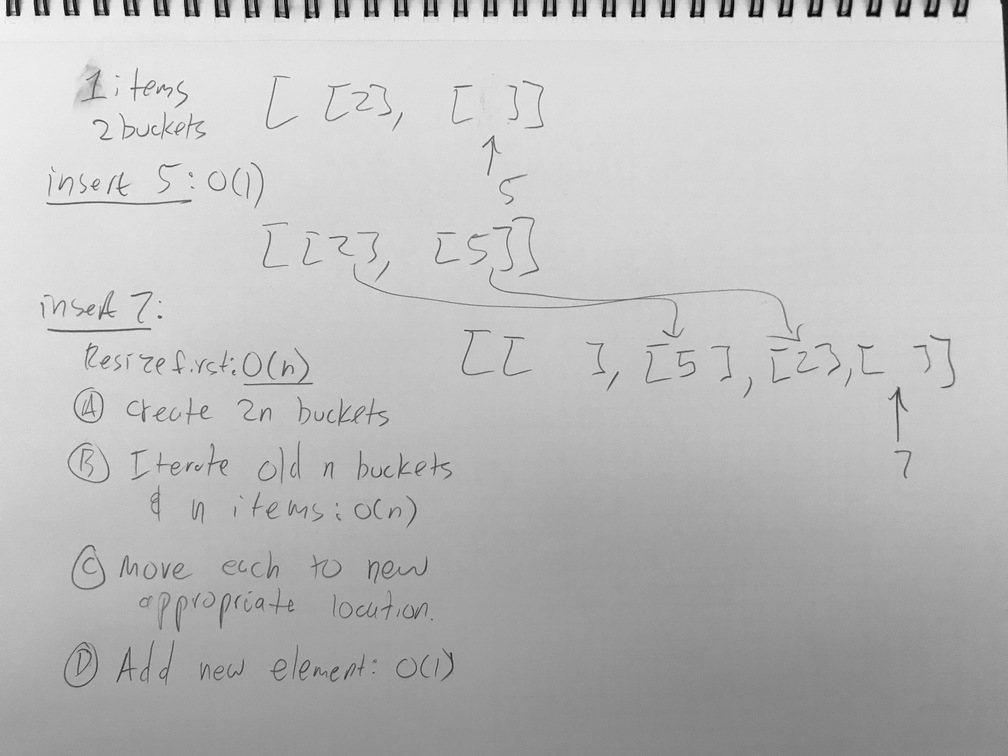 1 items [ [2], [ ]]
2 buckets
insert 5: O(1) 5
[[2], [5]]
insert 7:
Resize first: O(n) [[ ], [5], [2], [ ]]
Ⓐ create 2n buckets
7
Ⓑ Iterate old n buckets
& n items: O(n)
Ⓒ Move each to new
appropriate location.
Ⓓ Add new element: O(1)